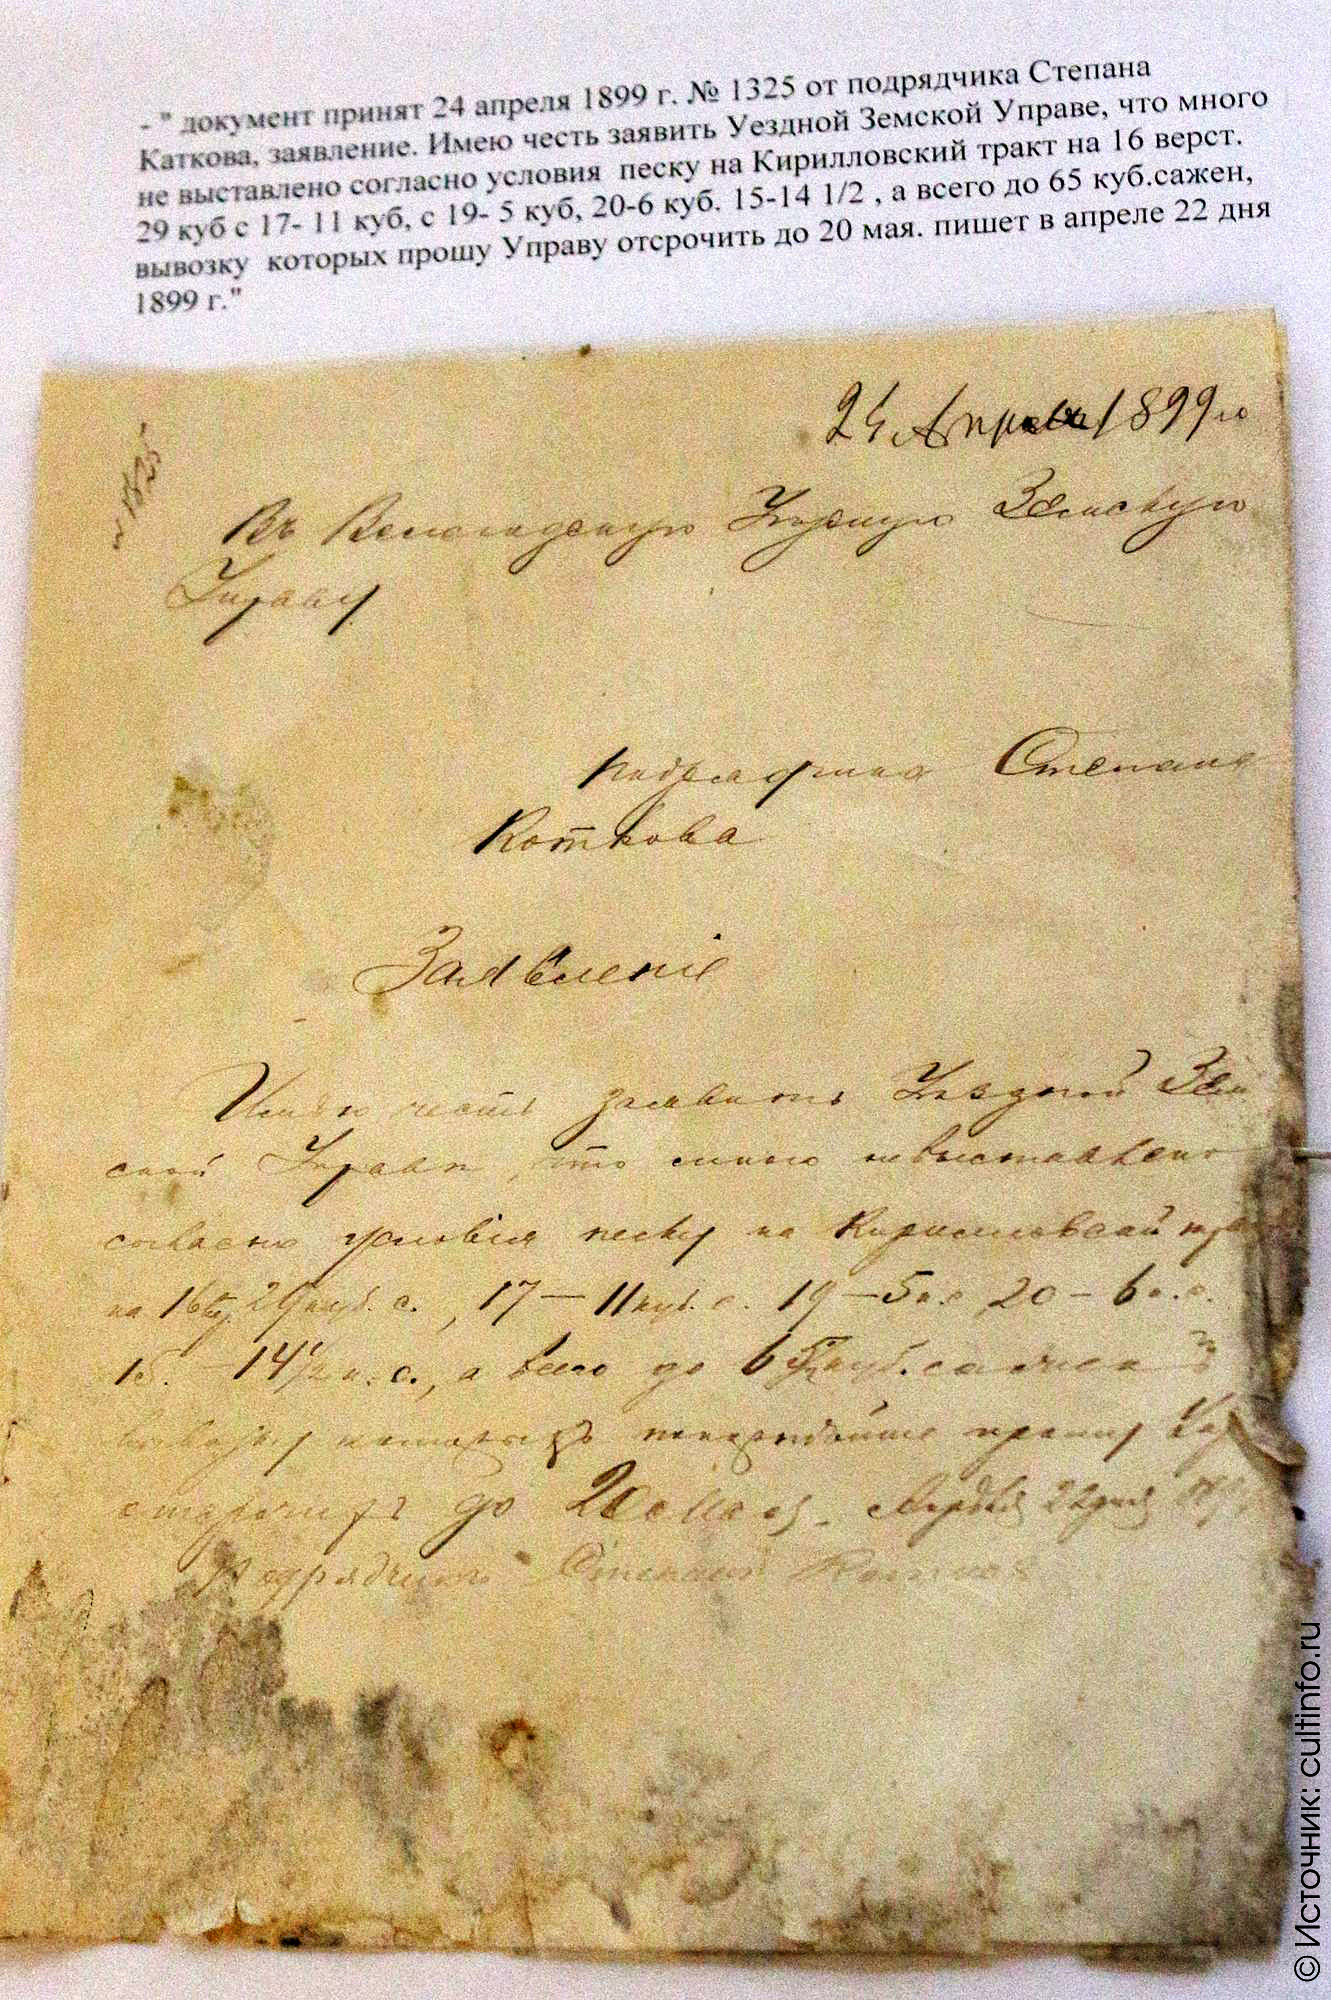 - " документ принят 24 апреля 1899 г. № 1325 от подрядчика Степана
Каткова, заявление. Имею честь заявить Уездной Земской Управе, что много
не выставлено согласно условия песку на Кирилловский тракт на 16 верст.
29 куб с 17- 11 куб, с 19- 5 куб, 20-6 куб. 15-14 1/2 , а всего до 65 куб.сажен,
вывозку которых прошу Управу отсрочить до 20 мая. пишет в апреле 22 дня
1899 г."
24 Апреля 1899 го
№ 1325
Въ Вологодскую Уездную Земскую
Управу
подрядчика Степана
Коткова
Заявленіе
Имею честь заявить Уездной Зем
ской Управе, что мною невыставлено
согласно условія песку на Кирилловской
на 16 29 куб. с., 17 — 11 куб. с. 19 — 5 к. с 20 — 6 к. с.
15. — 14 1/2 к. с., а всего до 65 куб. сажен
вывозку которых прошу
до 20 Мая. 22 дня
Подрядчикъ Степанъ
© Источник: cultinfo.ru